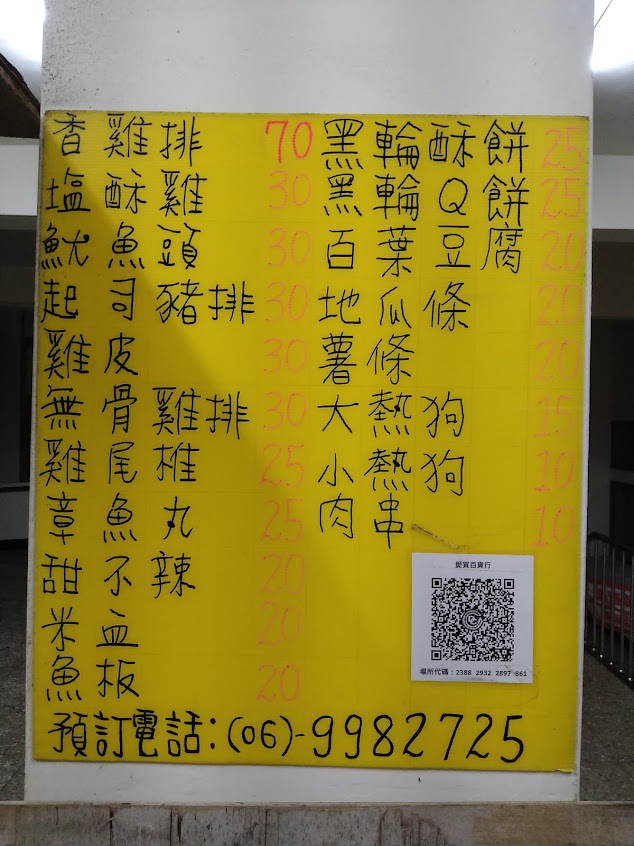 香雞排 70
塩酥雞 30
魷魚頭 30
起司豬排 30
雞皮 30
無骨雞排 30
雞尾椎 25
章魚丸 25
甜不辣 20
米血 20
魚板 20
黑輪酥餅 25
黑輪Q餅 25
百葉豆腐 20
地瓜條 20
薯條 20
大熱狗 15
小熱狗 10
肉串 10
愛買百貨行
場所代碼：2388 2932 2897 861
預訂電話：(06)-9982725